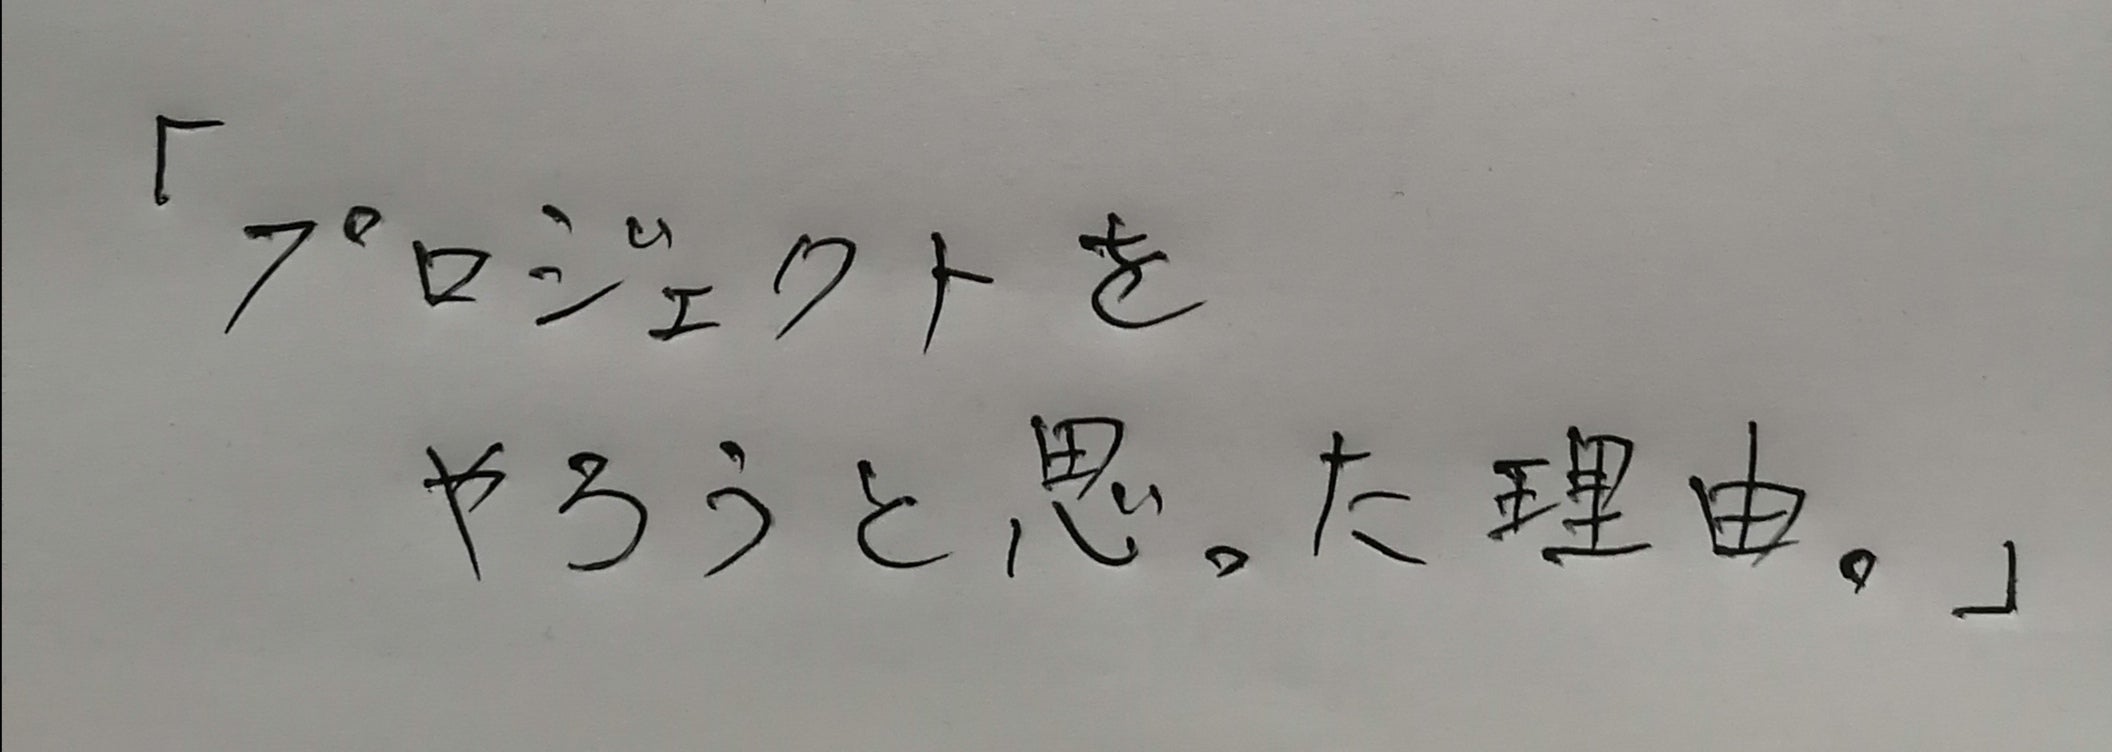 「プロジェクトを
やろうと思った理由。」